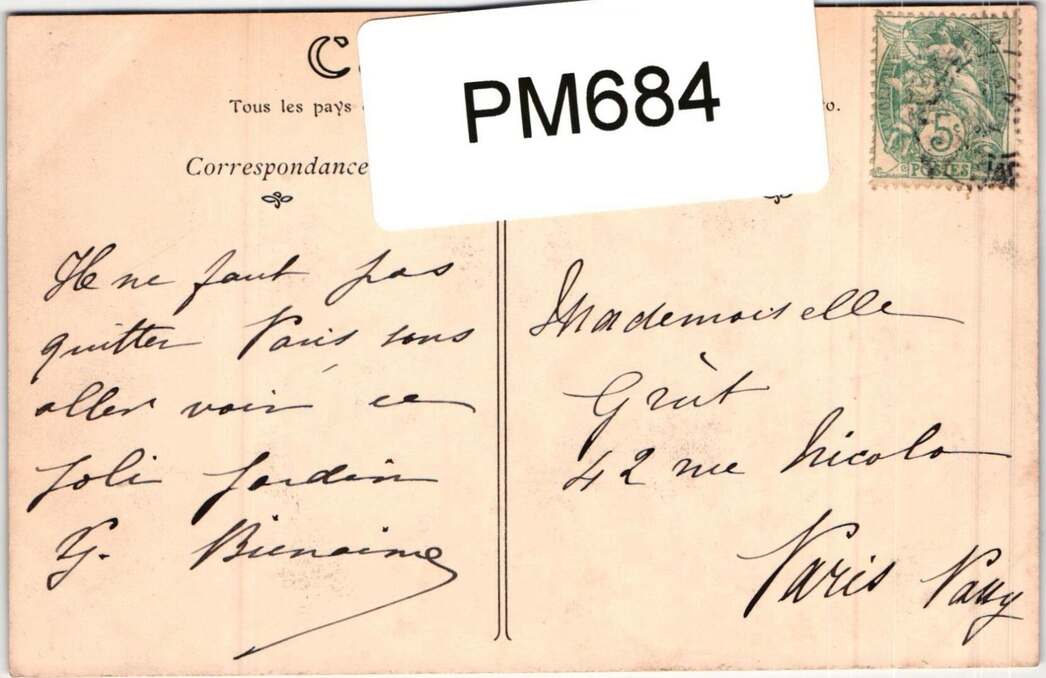 C
PM684
Tous les pays
ro.
Correspondance
5c
POSTES
Il ne faut pas
quitter Paris sans
aller voir ce
joli jardin
G. Bienaimé
Mademoiselle
Grüt
42 rue Nicolo
Paris Passy